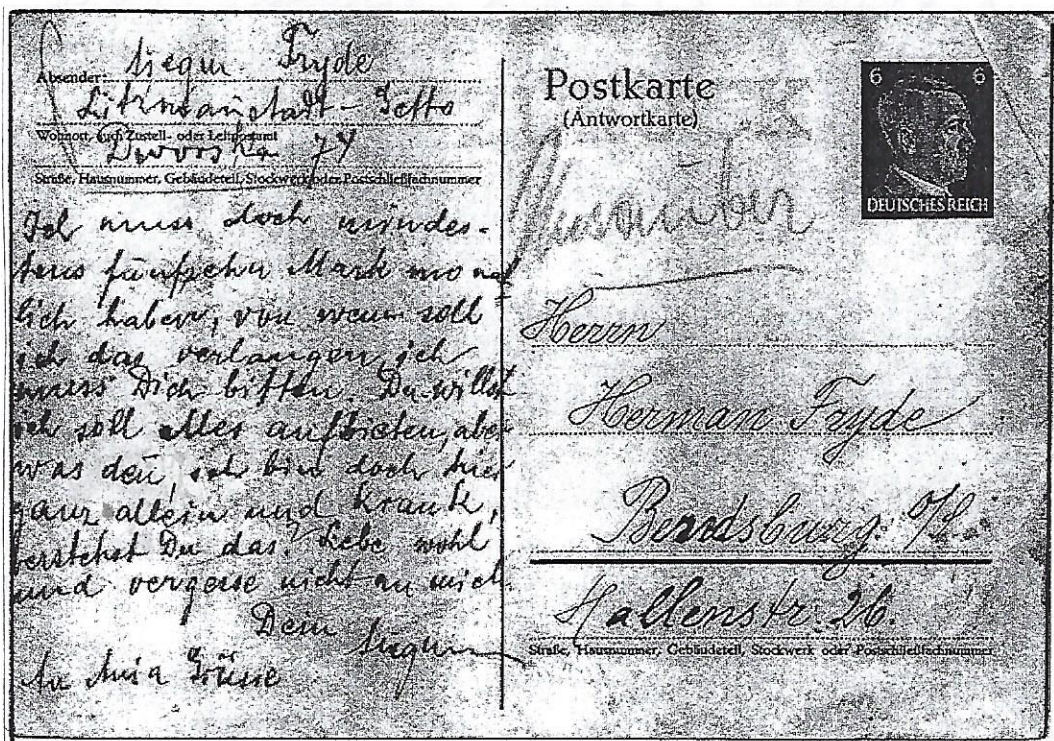 Absender: Fryde
Litzmannstadt - Getto
Wohnort, auch Zustell- oder Leitpostamt
Dworska 74
Straße, Hausnummer, Gebäudeteil, Stockwerk oder Postschließfachnummer
Ich muss doch mindes-
tens fünfzehn Mark monat
lich haben, von wem soll
ich das verlangen, ich
muss Dich bitten. Du willst
ich soll alles aufbieten, aber
was den, ich bin doch hier
ganz allein und krank,
verstehst Du das? Lebe wohl
und vergesse nicht an mich.
Dein
An Ania Grüsse
Postkarte
(Antwortkarte)
6 6
DEUTSCHES REICH
Herrn
Herman Fryde
Bendsburg O/S.
Hallenstr. 26.
Straße, Hausnummer, Gebäudeteil, Stockwerk oder Postschließfachnummer